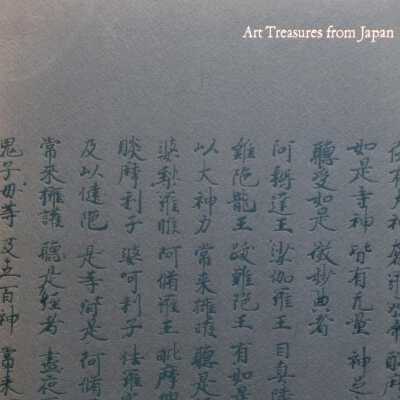 Art Treasures from Japan
如是等神 皆有无量 神足
聽受如是 微妙典者
阿耨達王 娑伽羅王 目真隣
難陀龍王 跋難陀王 有如是
以大神力 常來擁護 聽是
婆稚羅睺 阿脩羅王 毗摩
睒摩利子 波呵利子 佉羅
及以揵陀 是等皆是 阿脩
常來擁護 聽是經者 晝夜
鬼子母等 及五百神 常來